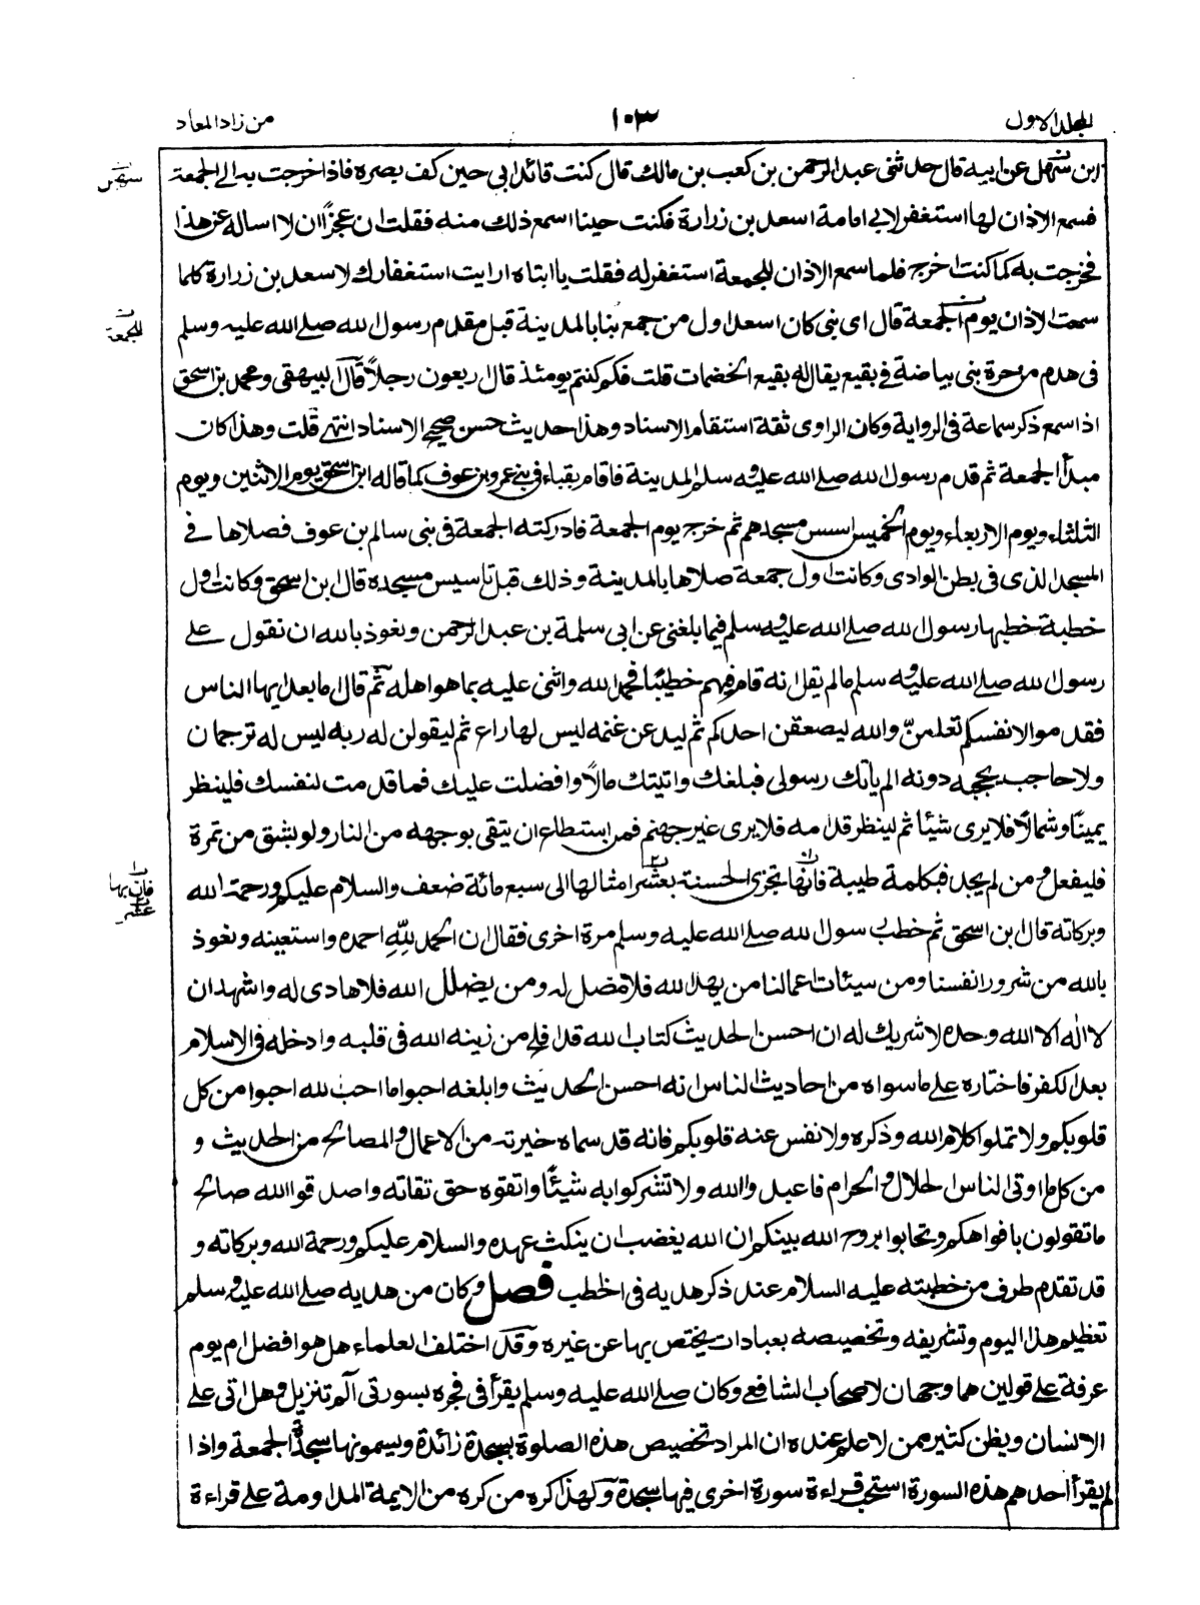 المجلد الاول ١٠٣ من زاد المعاد
ابن سهل عن ابيه قال حدثنى عبد الرحمن بن كعب بن مالك قال كنت قائد ابي حين كف بصره فاذا خرجت به الى الجمعة
فسمع الاذان لها استغفر لابي امامة اسعد بن زرارة فكنت حينا اسمع ذلك منه فقلت ان عجزًا ان لا اساله عن هذا
فخرجت به كما كنت اخرج فلما سمع الاذان للجمعة استغفر له فقلت يا ابتاه ارايت استغفارك لاسعد بن زرارة كلما
سمعت الاذان يوم الجمعة قال اى بنى كان اسعد اول من جمع بنا بالمدينة قبل مقدم رسول الله صلى الله عليه وسلم
فى هدم من حرة بنى بياضة في بقيع يقال له بقيع الخضمات قلت فكم كنتم يومئذ قال اربعون رجلاً قال البيهقى ومحمد بن اسحق
اذا سمع ذكر سماعة فى الرواية وكان الراوى ثقة استقام الاسناد وهذا حديث حسن صحيح الاسناد انتهى قلت وهذا كان
مبدأ الجمعة ثم قدم رسول الله صلى الله عليه وسلم المدينة فاقام بقباء فى بنى عمرو بن عوف كما قاله ابن اسحق يوم الاثنين ويوم
الثلثاء ويوم الاربعاء ويوم الخميس اسس مسجدهم ثم خرج يوم الجمعة فادركته الجمعة فى بنى سالم بن عوف فصلاها في
المسجد الذى فى بطن الوادى وكانت اول جمعة صلاها بالمدينة وذلك قبل تاسيس مسجده قال ابن اسحق وكانت اول
خطبة خطبها رسول الله صلى الله عليه وسلم فيما بلغنى عن ابى سلمة بن عبد الرحمن ونعوذ بالله ان نقول على
رسول الله صلى الله عليه وسلم ما لم يقل انه قام فيهم خطيبًا فحمد الله واثنى عليه بما هو اهله ثم قال اما بعد ايها الناس
فقدموا لانفسكم تعلمنّ والله ليصعقن احدكم ثم ليدعن غنمه ليس لها راع ثم ليقولن له ربه ليس له ترجمان
ولا حاجب يحجبه دونه الم ياتك رسولى فبلغك واتيتك مالاً وافضلت عليك فما قدمت لنفسك فلينظر
يمينًا وشمالاً فلا يرى شيئا ثم لينظر قدامه فلا يرى غير جهنم فمن استطاع ان يتقى بوجهه من النار ولو بشق من تمرة
فليفعل ومن لم يجد فبكلمة طيبة فانها تجزى الحسنة بعشر امثالها الى سبع مائة ضعف والسلام عليكم ورحمة الله
وبركاته قال ابن اسحق ثم خطب رسول الله صلى الله عليه وسلم مرة اخرى فقال ان الحمد لِلّهِ احمده واستعينه ونعوذ
بالله من شرور انفسنا ومن سيئات اعمالنا من يهد الله فلا مضل له ومن يضلل الله فلا هادى له واشهد ان
لا اله الا الله وحده لا شريك له ان احسن الحديث كتاب الله قد افلح من زينه الله فى قلبه وادخله فى الاسلام
بعد الكفر فاختاره على ماسواه من احاديث الناس انه احسن الحديث وابلغه احبوا ما احب الله احبوا من كل
قلوبكم ولا تملوا كلام الله وذكره ولا نفس عنه قلوبكم فانه قد سماه خيرته من الاعمال والمصالح من الحديث و
من كل ما اوتى الناس الحلال والحرام فاعبدوا الله ولا تشركوا به شيئًا واتقوه حق تقاته واصدقوا الله صالح
ما تقولون بافواهكم وتحابوا بروح الله بينكم ان الله يغضب ان ينكث عهده والسلام عليكم ورحمة الله وبركاته و
قد تقدم طرف من خطبته عليه السلام عند ذكر هديه فى الخطب فصل وكان من هديه صلى الله عليه وسلم
تعظيم هذا اليوم وتشريفه وتخصيصه بعبادات يختص بها عن غيره وقد اختلف العلماء هل هو افضل ام يوم
عرفة على قولين هما وجهان لاصحاب الشافعى وكان صلى الله عليه وسلم يقرأ فى فجره بسورتى آلم تنزيل وهل اتى على
الانسان ويظن كثير ممن لا علم عنده ان المراد تخصيص هذه الصلوة بسجدة زائدة ويسمونها سجدة الجمعة واذا
لم يقرأ احدهم هذه السورة استحب قراءة سورة اخرى فيها سجدة وكهذا كره من كره من الايمة المداومة على قراءة
سهل
للجمعة
فان بها
عشر